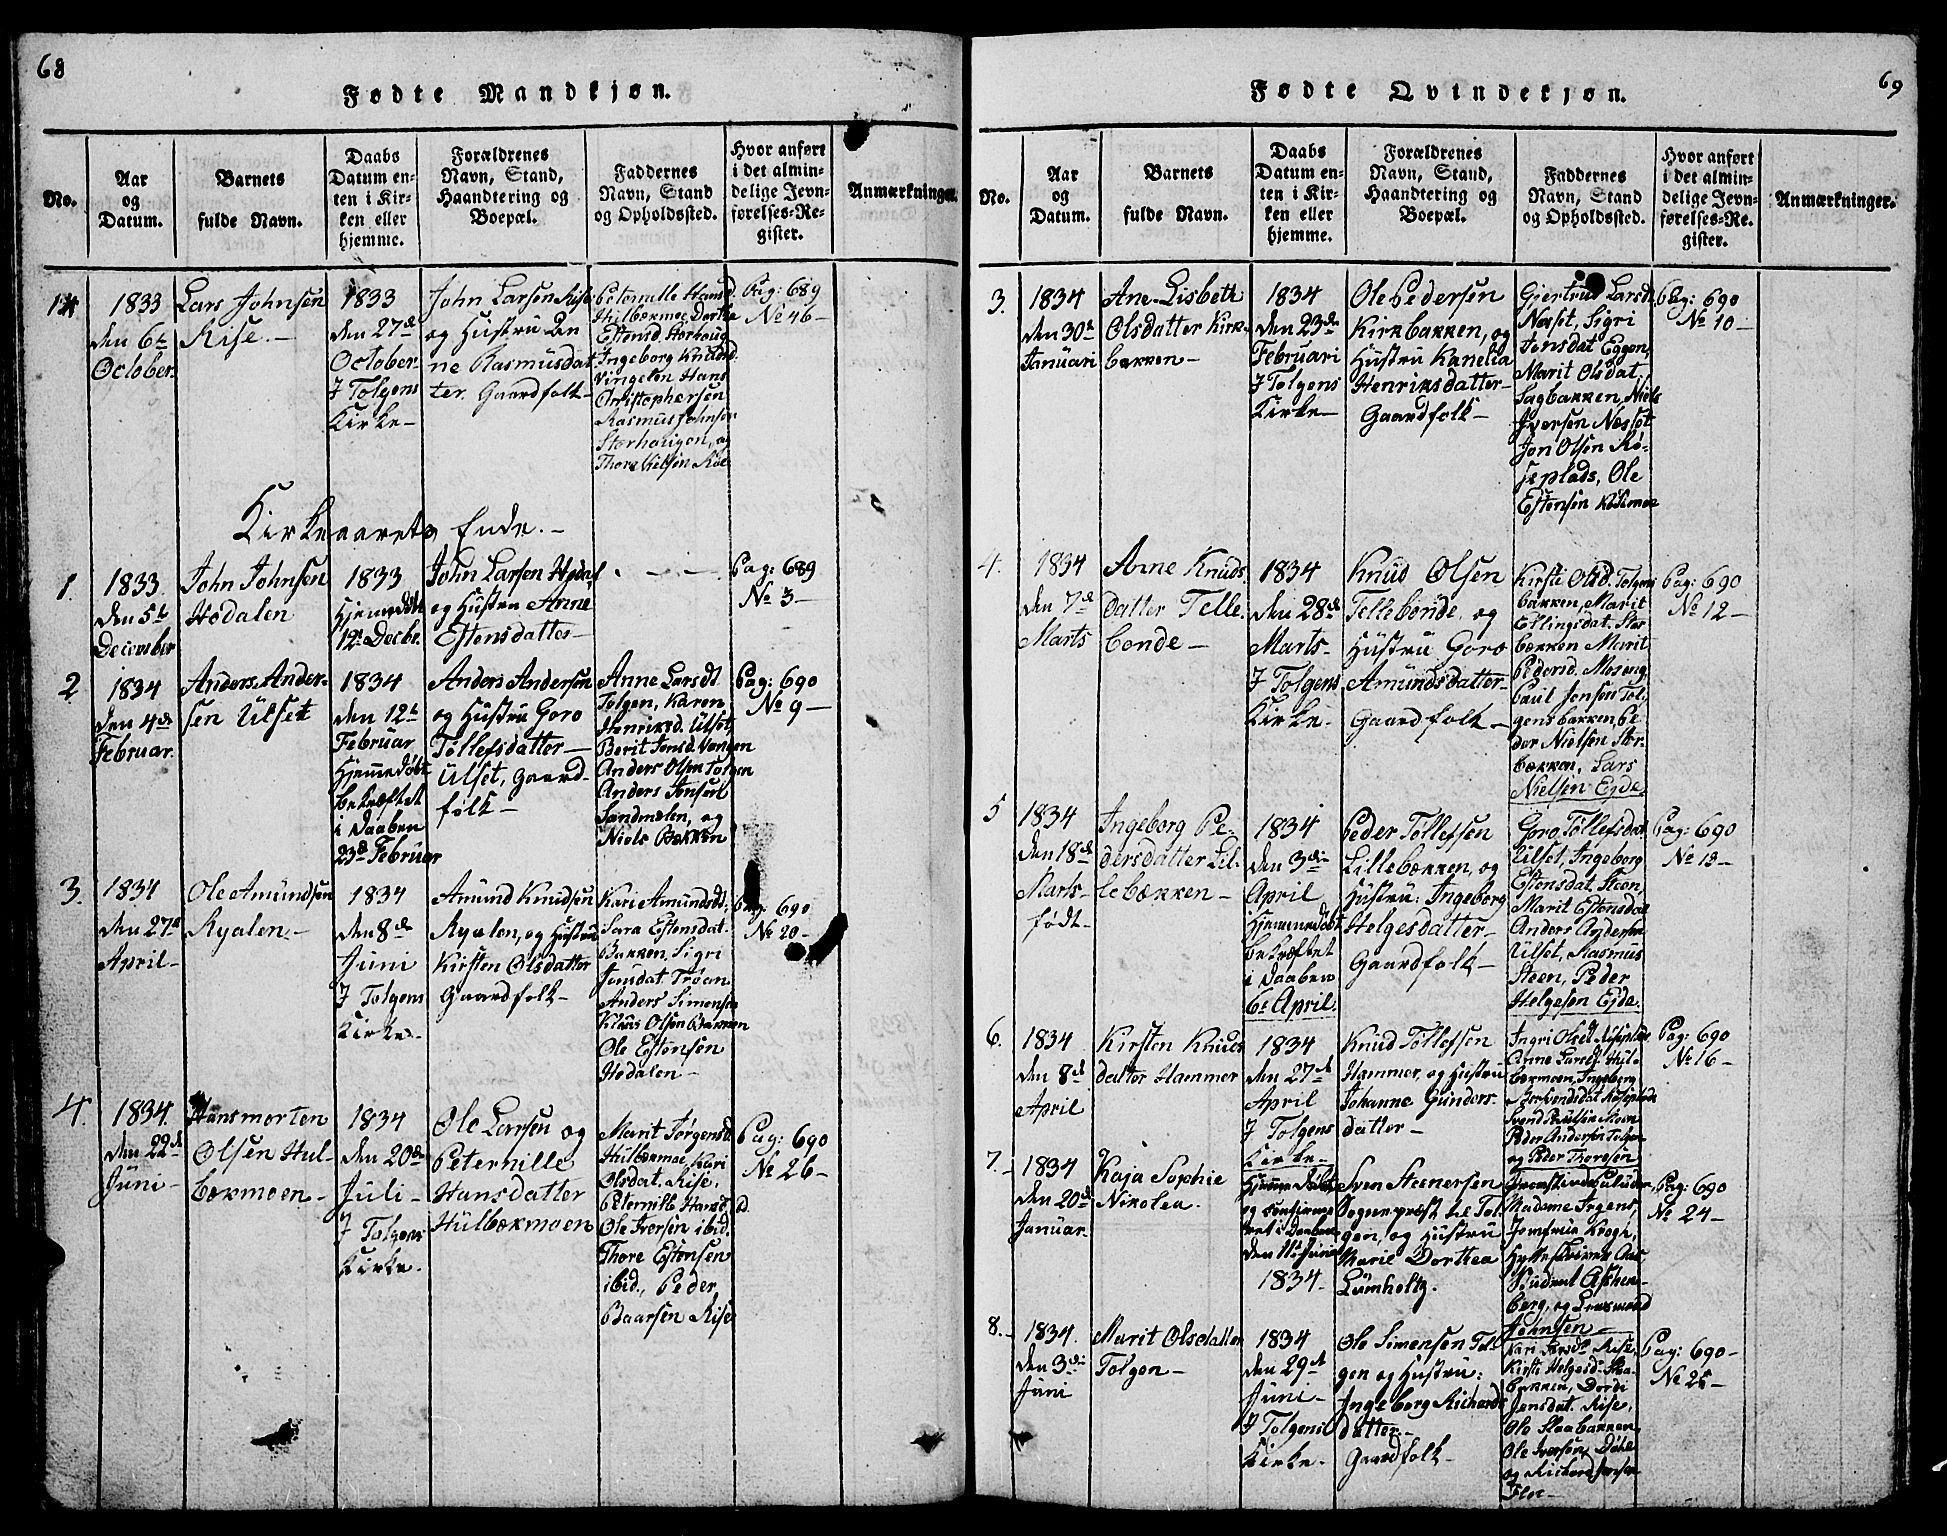 68
Fødte Mandkjøn.
No.
Aar
og
Datum.
Barnets
fulde Navn.
Daabs
Datum en-
ten i Kir-
ken eller
hjemme.
Forældrenes
Navn, Stand,
Haandtering og
Boepæl.
Faddernes
Navn, Stand
og Opholdssted.
Hvor anført
i det almin-
delige Jevn-
førelses-Re-
gister.
Anmærkninger.
14
1833
den 6te
October.
Lars Johnsen
Rise.
1833
den 27de
October
I Tolgens
Kirke
John Larsen Rise
og Hustru An
ne Rasmusdat
ter. Gaardfolk
Peternille Hansd.
Hulbækmoe Dorthe
Estensd. Storhaug
Ingeborg Knudsd.
Vingelen Hans
Christophersen
Rasmus Johnsen
Storhaugen, og
Thore Nielsen
Pag: 689
No 46
Kirkeaarets Ende.
1.
1833
den 5te
December
John Johnsen
Hodalen
1833
Hjemmedøbt
12te Decbr.
John Larsen Hodal
og Hustru Anne
Estensdatter
Pag: 689
No 3
2
1834
den 4de
Februar.
Anders Ander-
sen Ulset
1834
den 12te
Februar
Hjemmedøbt
bekræftet
i Daaben
23de Februar
Anders Andersen
og Hustru Goro
Tollefsdatter
Ulset, Gaard-
folk
Anne Larsdt
Tolgen, Karen
Henriksd. Ulset,
Berit Jonsd. Vangen
Anders Olsen Tolgen
Anders Jonsen
Sandmælen, og
Niels Bækken
Pag: 690
No 9
3.
1834
den 27de
April
Ole Amundsen
Ryalen
1834
den 8de
Juni
I Tolgens
Kirke.
Amund Knudsen
Ryalen, og Hustru
Kirsten Olsdatter
Gaardfolk
Kari Amundsdt,
Sara Estensdat.
Bakken, Sigri
Jonsdat Trøen
Anders Simensen
Klaus Olsen Bakken
Ole Estensen
Hodalen
Pag: 690
No 20
4.
1834.
den 22de
Juni
Hansmorten
Olsen Hul-
bækmoen
1834
den 20de
Juli
I Tolgens
Kirke.
Ole Larsen og
Peternille
Hansdatter
Hulbækmoen
Marit Jørgensd.
Hulbækmoe, Kari
Olsdat. Rise,
Peternille Hansd.
Ole Iversen ibid.
Thore Estensen
ibid., Peder
Baarsen Rise
Pag: 690
No 26
69
Fødte Qvindekjøn.
No.
Aar
og
Datum.
Barnets
fulde Navn.
Daabs
Datum en-
ten i Kir-
ken eller
hjemme.
Forældrenes
Navn, Stand,
Haandtering og
Boepæl.
Faddernes
Navn, Stand
og Opholdssted.
Hvor anført
i det almin-
delige Jevn-
førelses-Re-
gister.
Anmærkninger.
3.
1834
den 30te
Januari
Ane Lisbeth
Olsdatter Kirk-
bakken
1834
den 23de
Februari
I Tolgens
Kirke
Ole Pedersen
Kirkbakken, og
Hustru Kanelia
Henriksdatter
Gaardfolk
Gjertrud Larsdt
Næset, Sigri
Jonsdat Eggen,
Marit Olsdat,
Sagbakken, Niels
Iversen Næsset
Jon Olsen Rø-
seplads, Ole
Estensen
Pag: 690
No 10
4.
1834
den 7de
Marts
Anne Knuds
datter Telle
bonde
1834
den 28de
Marts
I Tolgens
Kirke.
Knud Olsen
Tellebonde, og
Hustru Goro
Amundsdatter
Gaardfolk
Kirsti Olsd. Tolgens
bakken, Marit
Ellingsdat. Stor
bækken Marit
Pedersd. Moseng
Paul Jonsen Tol-
gensbakken, Pe
der Nielsen Stor-
bækken, Lars
Nielsen Eide.
Pag: 690
No 12
5
1834
den 18de
Marts
født
Ingeborg Pe-
dersdatter Lil-
lebækken
1834
den 3die
April
Hjemmedøbt
bekræftet
i Daaben
6te April.
Peder Tollefsen
Lillebækken, og
Hustru: Ingeborg
Helgesdatter
Gaardfolk
Goro Tollefsdat
Ulset, Ingeborg
Estensdat. Steen,
Marit Estensdat
Anders Andersen
Ulset, Rasmus
Steen, Peder
Helgesen Eide.
Pag: 690
No 13
6.
1834
den 8de
April
Kirsten Knuds
datter Hammer
1834
den 27de
April
I Tolgens
Kirke
Knud Tollefsen
Hammer, og Hustru
Johanne Gunders-
datter
Ingri Olsdt
Anne Larsdt. Hul-
bækmoen, Ingeborg
Peder Andersen Tolgen
og Peder Thoresen
Pag: 690
No 16
7.
1834
den 20de
Januar.
Kaja Sophie
Nikolea.
Hjemme døbt,
og confirme
ret i Daaben
den 11te Juni
1834.
Sven Steenersen
Sognepræst til Tol-
gen, og Hustru
Marie Dorthea
Lumholtz.
Madame Irgens,
Jomfrue Krogh,
Hytteskriver Aas
Student Aschen-
berg, og Lensmand
Johnsen
Pag: 690
No 24
8.
1834.
den 3die
Juni
Marit Olsdatter
Tolgen
1834
den 29de
Juni
I Tolgens
Kirke.
Ole Simensen Tol-
gen og Hustru:
Ingeborg Richards
datter.
Gaardfolk
Kari Larsdt Rise,
Kirsti Helgesd. Staa-
bakken, Dordi
Jonsdat. Rise,
Ole Staabakken
Ole Iversen Døhl
og Richard Iversen
Floe
Pag: 690
No 25